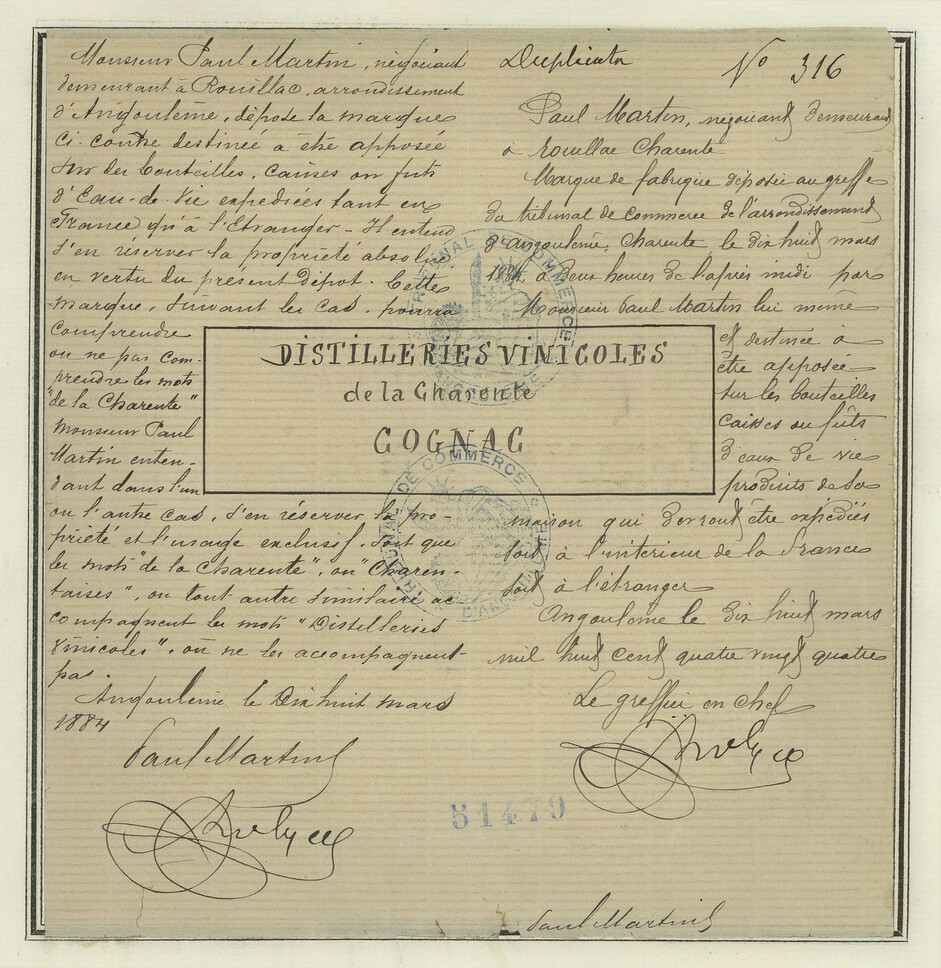 Monsieur Paul Martin, négociant
demeurant à Rouillac, arrondissement
d'Angoulême, dépose la marque
ci-contre destinée à être apposée
sur des bouteilles, caisses ou fûts
d'Eau-de-Vie expédiées tant en
France qu'à l'Etranger - Il entend
s'en réserver la propriété absolue
en vertu du présent dépot. Cette
marque, suivant les cas, pourra
comprendre
ou ne pas com-
prendre les mots
"de la Charente"
Monsieur Paul
Martin enten-
dant dans l'un
ou l'autre cas, s'en réserver la pro-
priété et l'usage exclusif, soit que
les mots "de la Charente", ou "Charen-
taises", ou tout autre similaire ac-
compagnent les mots "Distilleries
Vinicoles", ou ne les accompagnent
pas.
Angoulême le Dix huit mars
1884
Paul Martin
Duplicata
No 316
Paul Martin, négociant demeurant
à Rouillac Charente
Marque de fabrique déposée au greffe
du tribunal de commerce de l'arrondissement
d'angoulême, Charente le dix huit mars
1884, à deux heures de l'après midi par
Monsieur Paul Martin lui même
et destinée à
être apposée
sur les bouteilles
caisses ou fûts
d'eaux de vie
produits de sa
maison qui devront être expédiés
soit à l'intérieur de la France
soit à l'étranger
Angoulême le dix huit mars
mil huit cent quatre vingt quatre
Le greffier en chef
DISTILLERIES VINICOLES
de la Charente
COGNAC
TRIBUNAL DE COMMERCE
D'ANGOULEME
TRIBUNAL DE COMMERCE
D'ANGOULEME
51479
Paul Martin